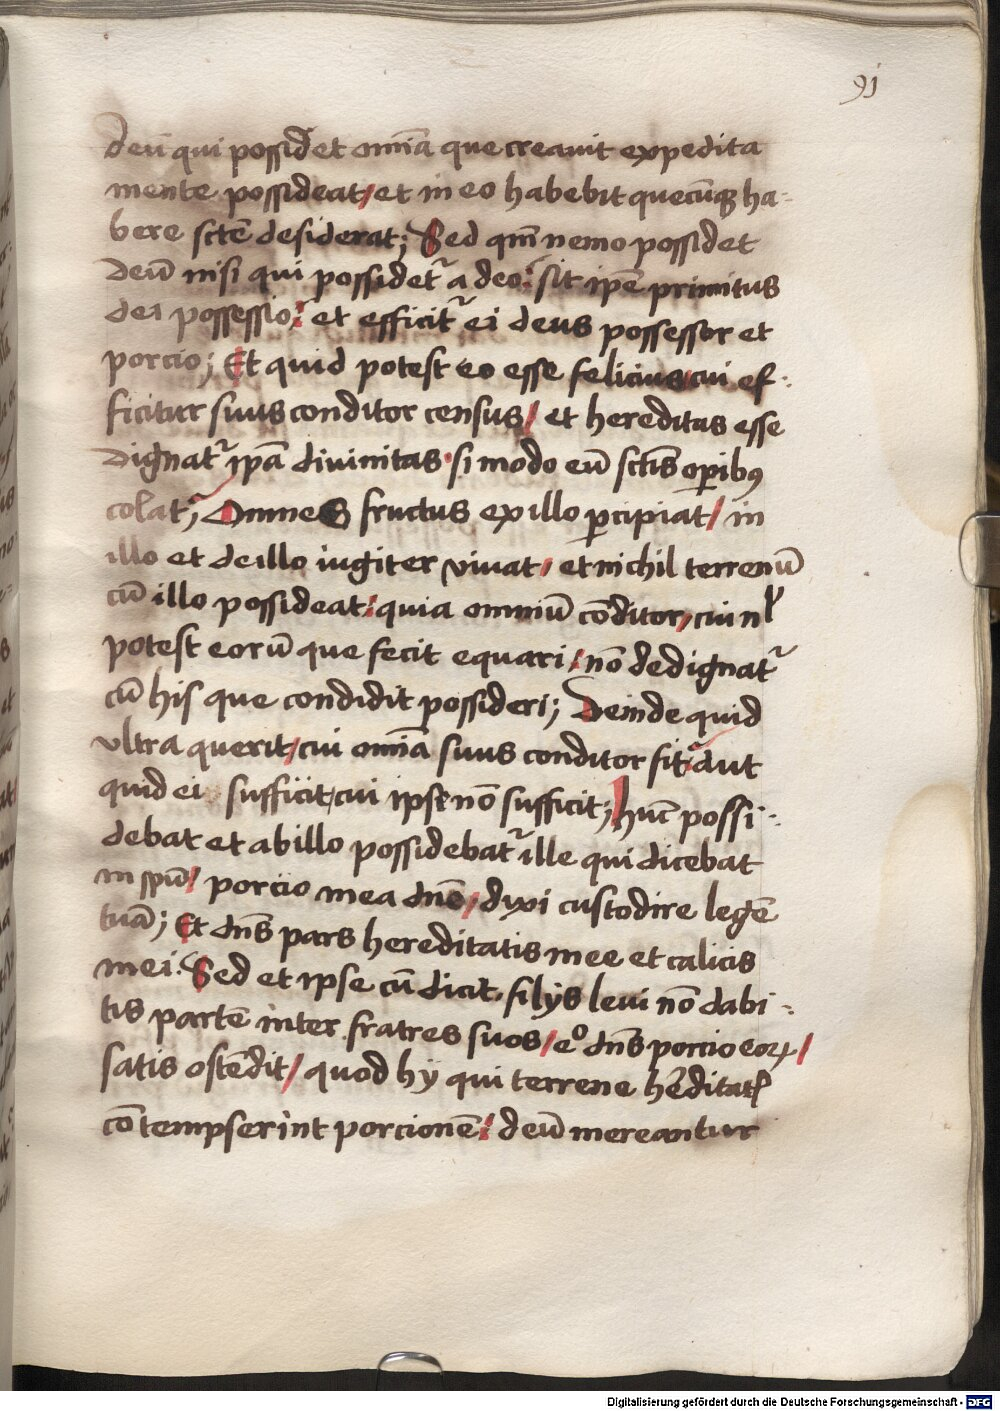 91
deū qui possidet om̄ia que creauit expedita
mente possideat / et in eo habebit quecūqꝫ ha-
bere sctē desiderat; Sed qm̄ nemo possidet
deū nisi qui possidetᷣ a deo: sit ip̄e primitus
dei possessio: et efficitᷣ ei deus possessor et
porcio; Et quid potest eo esse felicius / cui ef-
ficitur suus conditor census / et hereditas esse
dignatᷣ ip̄a diuinitas. si modo eū sctīs oꝑibꝰ
colat; Omnes fructus ex illo ꝑcipiat / in
illo et de illo iugiter viuat / et nichil terrenū
cū illo possideat: quia omniū cōditor / cui nl̄
potest eorū que fecit equari / nō dedignatᷣ
cū his que condidit possideri; Deinde quid
vltra querit / cui om̄ia suus conditor fit: aut
quid ei sufficit / cui ipse nō sufficit; hūc possi-
debat et ab illo possidebatᷣ ille qui dicebat
in spū / porcio mea dn̄e / dixi custodire legē
tuā; Et dn̄s pars hereditatis mee et calicis
mei. Sed et ipse cū dicit. filijs leui nō dabi-
tis partē inter fratres suos / eº dn̄s porcio eoꝝ /
satis ostēdit / quod hij qui terrene h̄editatꝭ
cōtempserint porcionē: deū mereantur
Digitalisierung gefördert durch die Deutsche Forschungsgemeinschaft - DFG